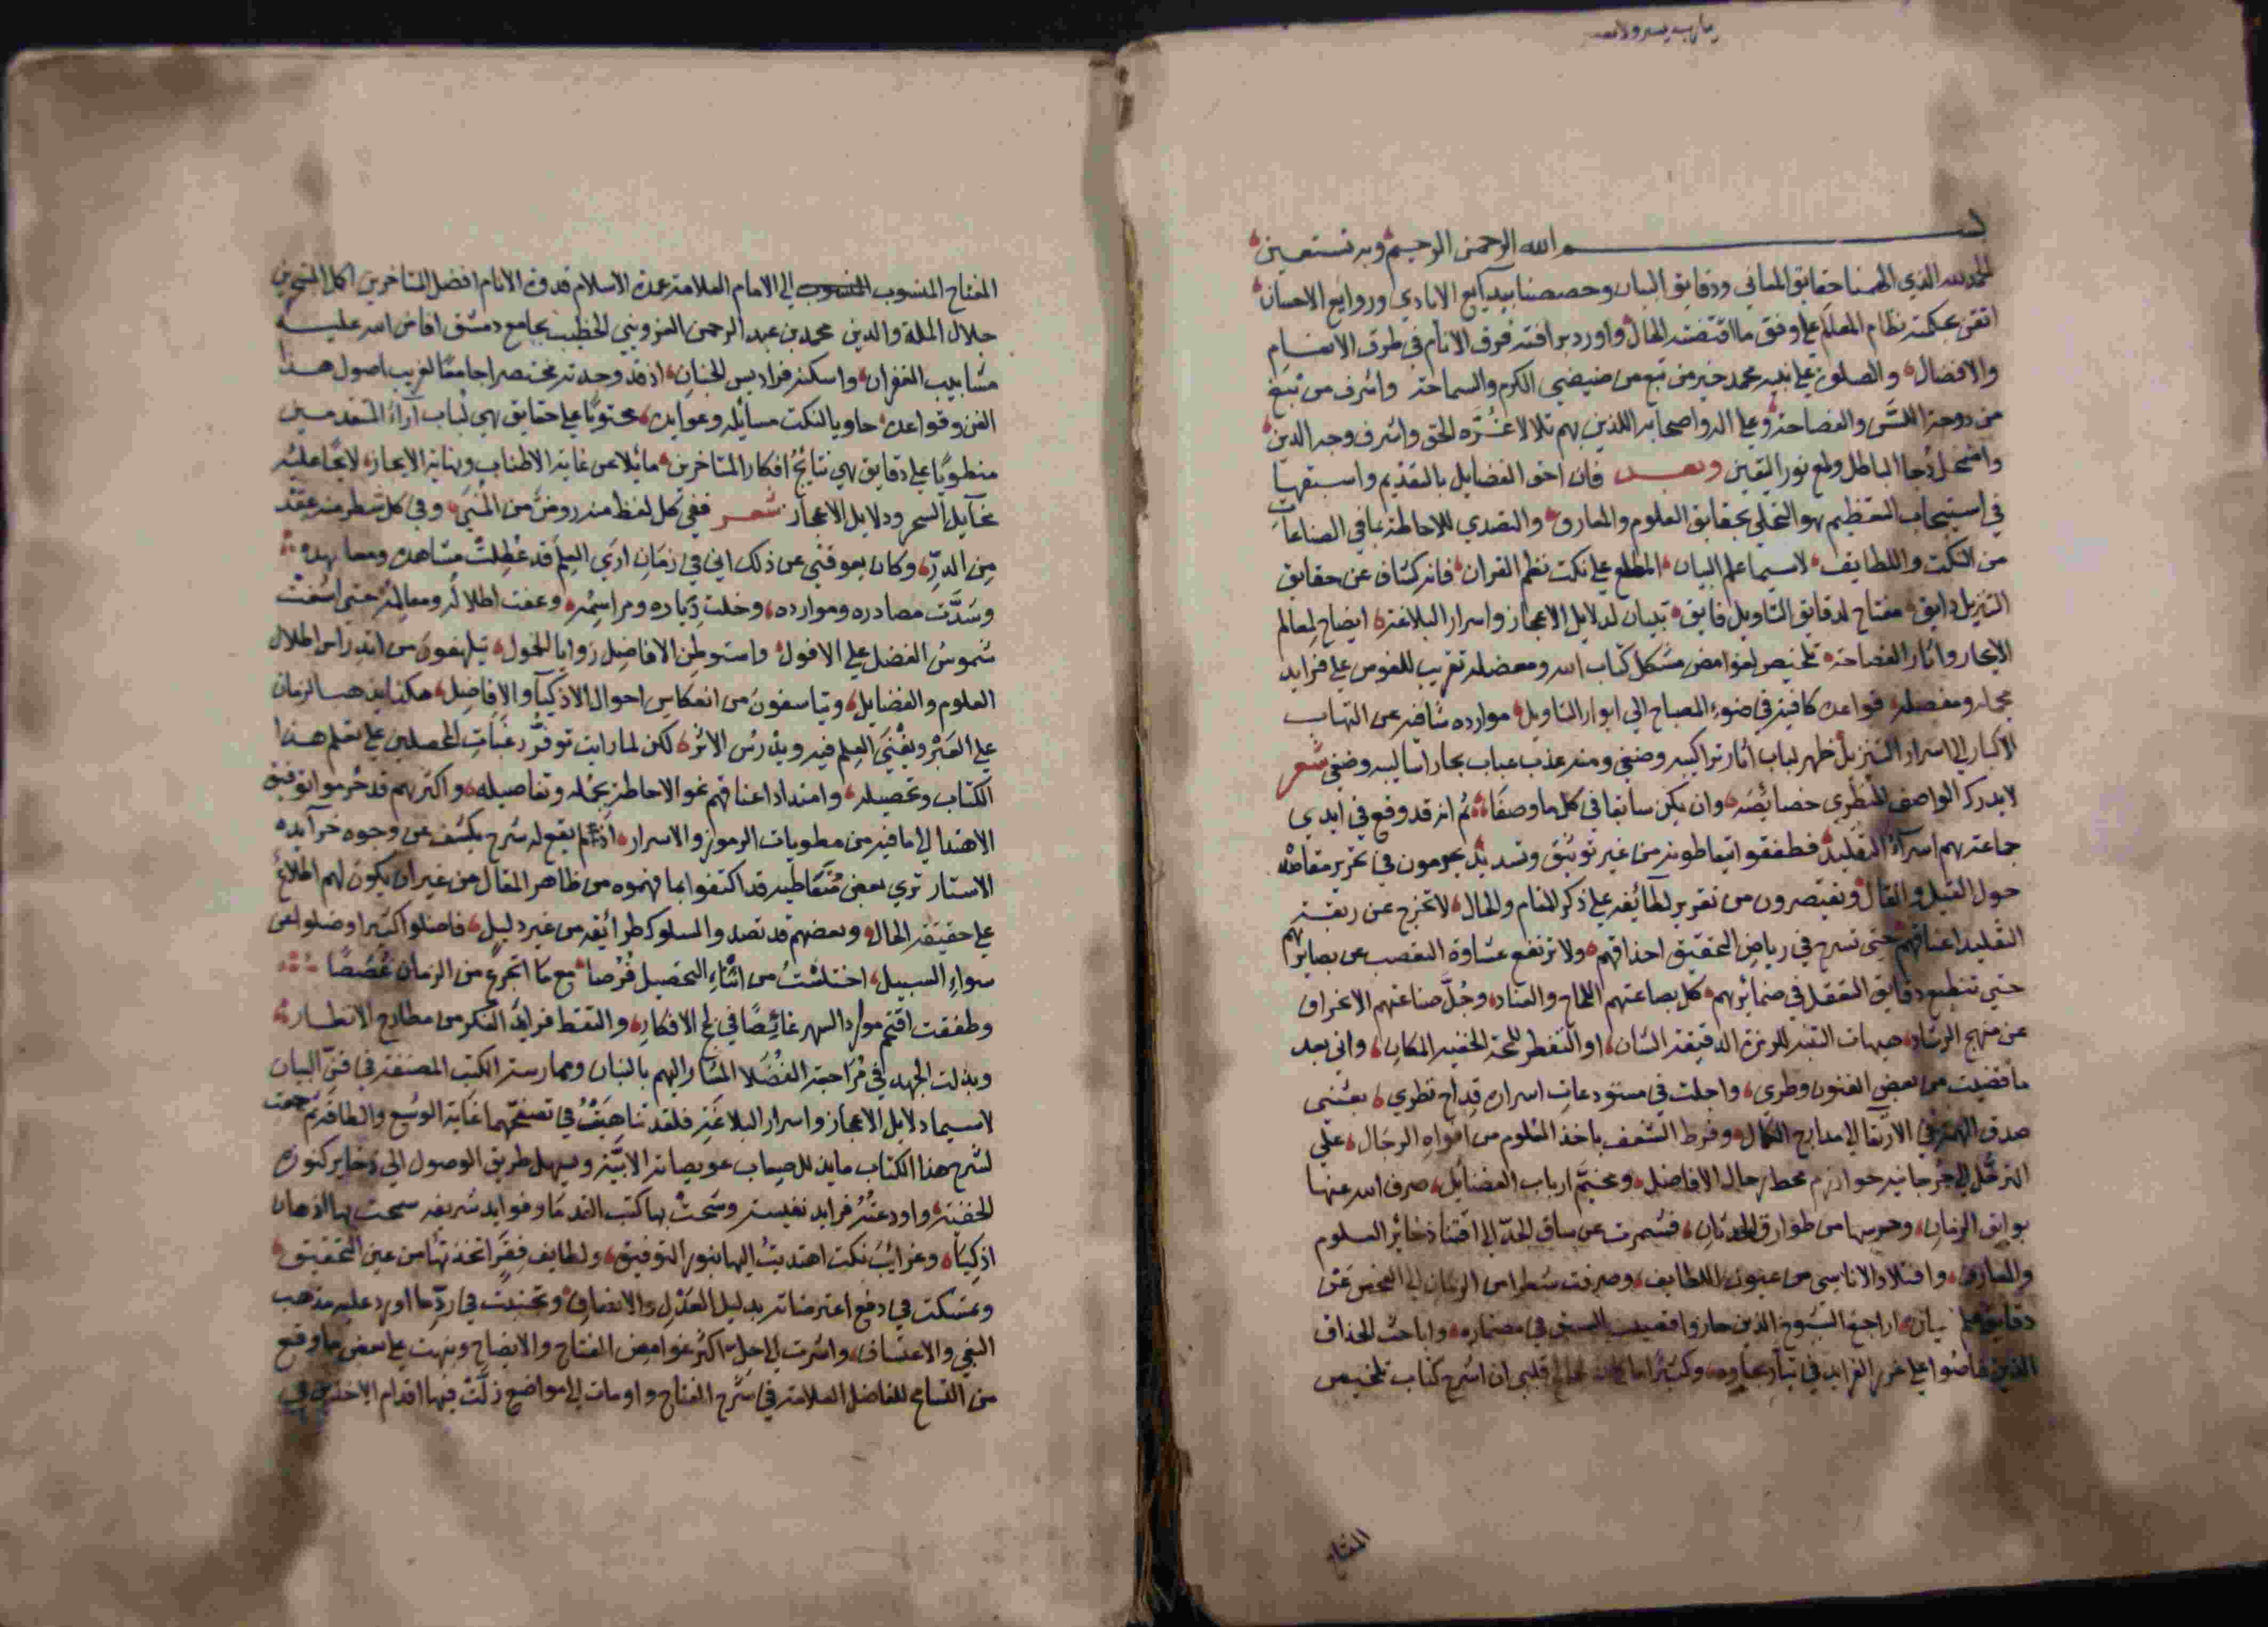 يا رب يسر ولا تعسر
بسم الله الرحمن الرحيم وبه نستعين
الحمد لله الذي الهمنا حقايق المعاني ودقايق البيان وخصصنا ببدآيع الايادي وروايع الاحسان
اتقن بحكمته نظام المعلم علي وفق ما اقتضته الحال واورد برافته فرق الانام في طرق الانعام
والافضال والصلوة علي نبيه محمد خير من نبع من ضيضي الكرم والسماحة واشرف من نبغ
من دوحة اللسن والفصاحة وعلي اله واصحابه اللذين بهم تلالا غرّه الحق واشرف وجه الدين
واضمحل دجا الباطل ولمع نور اليقين وبعد فان احق الفضايل بالتقديم واسبقها
في استيجاب التعظيم هو التحلي بحقايق العلوم والمعارف والتصدي للاحاطة بما في الصناعات
من النكت واللطايف لاسيما علم البيان المطلع علي نكت نظم القران فانه كشاف عن حقايق
التنزيل رايق مفتاح لدقايق التاويل فايق تبيان لدلايل الاعجاز واسرار البلاغة ايضاح لمعالم
الايجاز واثار الفصاحة تلخيص لغوامض مشكل كتاب الله ومعضله تقريب للغوص علي فرايد
مجمله ومفصله قواعده كافية في ضوء المصباح الي انوار التاويل موارده شافية عن التهاب
الاكباد الي اسرار التنزيل ظهر لباب اثار تراكيبه وضفي ومنه عذب عباب بحار اساليبه وضفي شعر
لا يدرك الواصف المطري خصائصه وان يكن سابقا في كل ما وصفا ثم انه قد وقع في ايدي
جماعة هم اسرآء التقليد فطفقوا يتعاطونه من غير توثيق وتسديد يحومون في تحرير مقاصده
حول القيل والقال ويقتصرون من تقرير لطائفه علي ذكر المقام والحال لا تخرج عن ربقة
التقليد اعناقهم حتي تسرح في رياض التحقيق احداقهم ولا ترتفع غشاوة التعصب عن بصايرهم
حتي تنطبع دقايق التعقل في ضمائرهم كل بضاعتهم اللجاج والعناد وجُلّ صناعتهم الانحراف
عن منهج الرشاد هيهات التنبه للرمزة الدقيقة الشان او التفطن للمحة الخفية المكان واني بعد
ما قضيت من بعض الفنون وطري واجلت في مستودعات اسراره قداح نظري بعثني
صدق الهمة في الارتقآ الي مدارج الكمال وفرط الشغف باخذ العلوم من افواه الرجال علي
الترحّل الي جرجانية خوارزم محط رحال الافاضل ومخيّم ارباب الفضائل صرف الله عنها
بوائق الزمان وحرسها من طوارق الحدثان فشمرت عن ساق الجدّ الي اقتنآ ذخائر العلوم
والمعارف وافتلاذ الاناسي من عيون اللطايف وصرفت شطرا من الزمان الي الفحص عن
دقايق علم البيان اراجع الشيوخ الذين حازوا قصبات السبق في مضماره واباحث الحذاق
الذين غاصوا علي غرر الفرايد في بحاره وكثيرا ما كان يختلج قلبي ان اشرح كتاب تلخيص
المفتاح
المفتاح المنسوب الي الامام العلامة عمدة الاسلام قدوة الانام افضل المتاخرين اكمل المتبحرين
جلال الملة والدين محمد بن عبد الرحمن القزويني الخطيب بجامع دمشق افاض الله عليه
شآبيب الغفران واسكنه فراديس الجنان اذ قد وجدته مختصرا جامعًا لغرر اصول هذا
الفن وقواعده حاويا لنكت مسائله وعوايده محتويًا علي حقايق هي لُباب آراء المتقدمين
منطويًا علي دقايق هي نتايجُ افكار المتاخرين مائلا عن غاية الاطناب ونهاية الايجاز لايحًا عليه
مخآيل السحر ودلايل الاعجاز شعر ففي كل لفظ منه روض من المُني وفي كل شطر منه عقد
من الدرّ وكان يعوقني عن ذلك اني في زمان اري العلم قد عُطِلتْ مشاهده ومعاهده
وسُدّت مصادره وموارده وخلت دياره ومراسمه وعفت اطلاله ومعالمه حتي اشفت
شموسُ الفضل علي الافول واستوطن الافاضل زوايا الخمول يتلهفون من اندراس اطلال
العلوم والفضايل ويتاسفون من انعكاس احوال الاذكيآ والافاضل هكذا يذهب الزمان
علي العبر ويفني العلم فيه ويدرس الاثر لكن لما رايت توفّر رغبات المحصلين علي تعلم هذا
الكتاب وتحصيله وامتداد اعناقهم نحو الاحاطة بجمله وتفاصيله واكثرهم قد حُرموا توفيق
الاهتدا الي ما فيه من مطويات الرموز والاسرار اذ لم يقع له شرح يكشف عن وجوه خرآيده
الاستار تري بعض متعاطيه قد اكتفوا بما فهموه من ظاهر المقال من غير ان يكون لهم اطلاعٌ
علي حقيقة الحال وبعضهم قد تصدوا لسلوك طرائقه من غير دليل فاضلوا كثيرا وضلوا عن
سواءِ السبيل اختلستُ من اثناء التحصيل فُرصا مع ما اتجرع من الزمان غُصصًا
وطفقت اقتحم موارد السهر غائصًا في لجج الافكار والتقط فرايد الفكر من مطارح الانظار
وبذلت الجهد في مراجعة الفُضلا المشار اليهم بالبنان وممارسة الكتب المصنفة في فنّ البيان
لاسيما دلايل الاعجاز واسرار البلاغة فلقد تناهيتُ في تصفّحهما غاية الوُسع والطاقة ثم جمعت
لشرح هذا الكتاب ما يذلل صعاب عويصاته الابيّة ويسهل طريق الوصول الي ذخاير كنوزه
الخفيّة واودعتُه فرايد نفيسة وشحتْ بها كتب القدما وفوايد شريفة سمحت بها اذهان
اذكيآ وغرائب نكت اهتديتُ اليها بنور التوفيق ولطايف فِقَر اتخذتها من عين التحقيق
وتمسّكت في دفع اعتراضاته بدليل العَدْل والانصاف وتجنبت في ردّ ما اورد عليه مذهب
البغي والاعتساف واشرت الي حلّ اكثر غوامض المفتاح والايضاح ونبهت علي بعض ما وقع
من التسامح للفاضل العلامة في شرح المفتاح واومات الي مواضع زلّت فيها اقدام الاخذين في